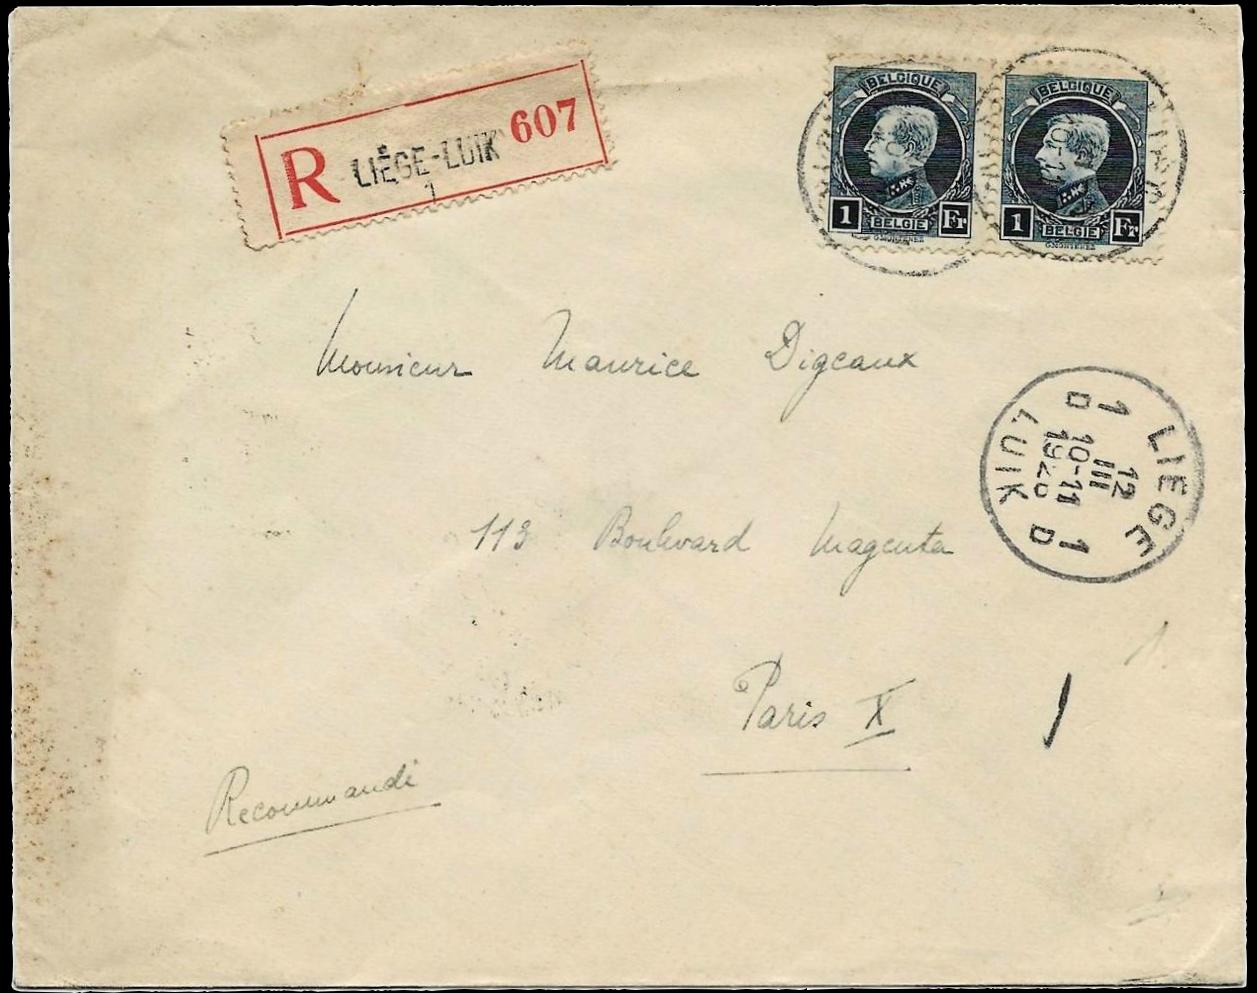 R LIÉGE-LUIK 607
1
BELGIQUE
1 Fr
BELGIE
BELGIQUE
1 Fr
BELGIE
Monsieur Maurice Digeaux
LIEGE
1 D
12
III
10-11
1926
1 D
LUIK
113 Boulevard Magenta
Paris X
Recommandé